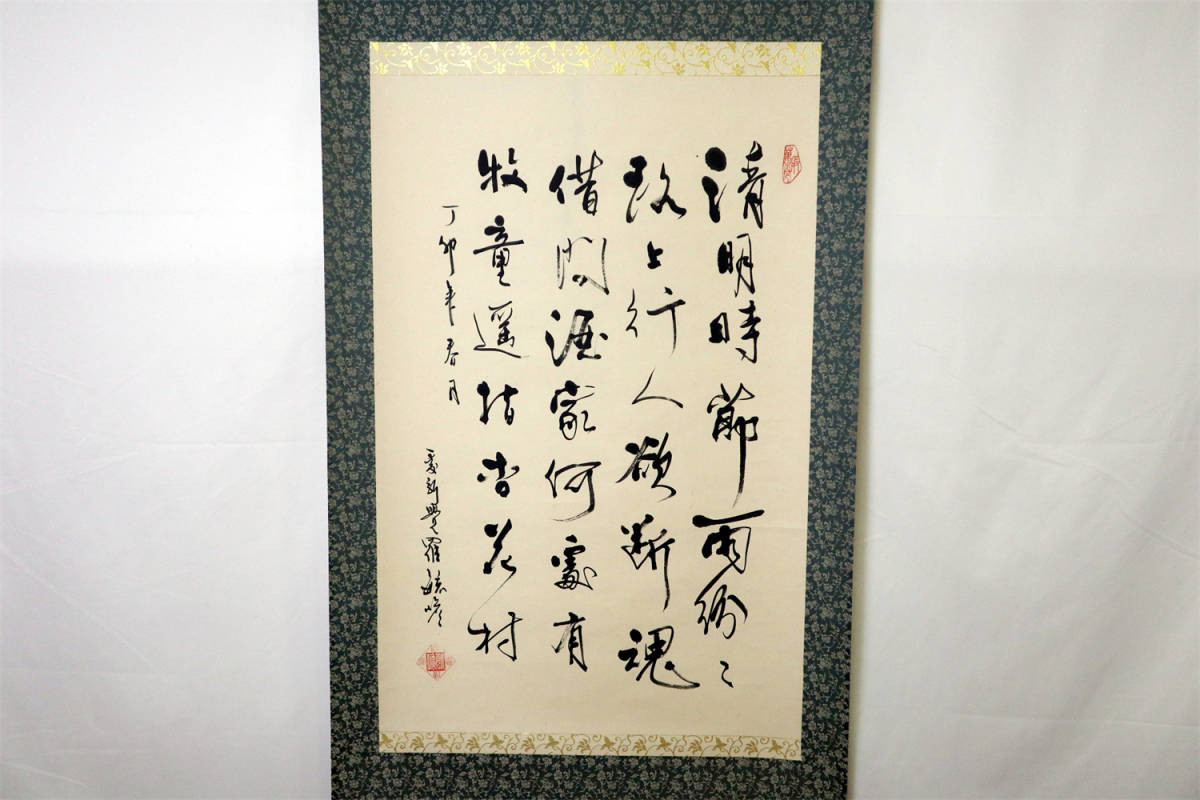 清明時節雨紛〻
路上行人欲斷魂
借問酒家何處有
牧童遥指杏花村
丁卯年春月
愛新覺羅毓峨